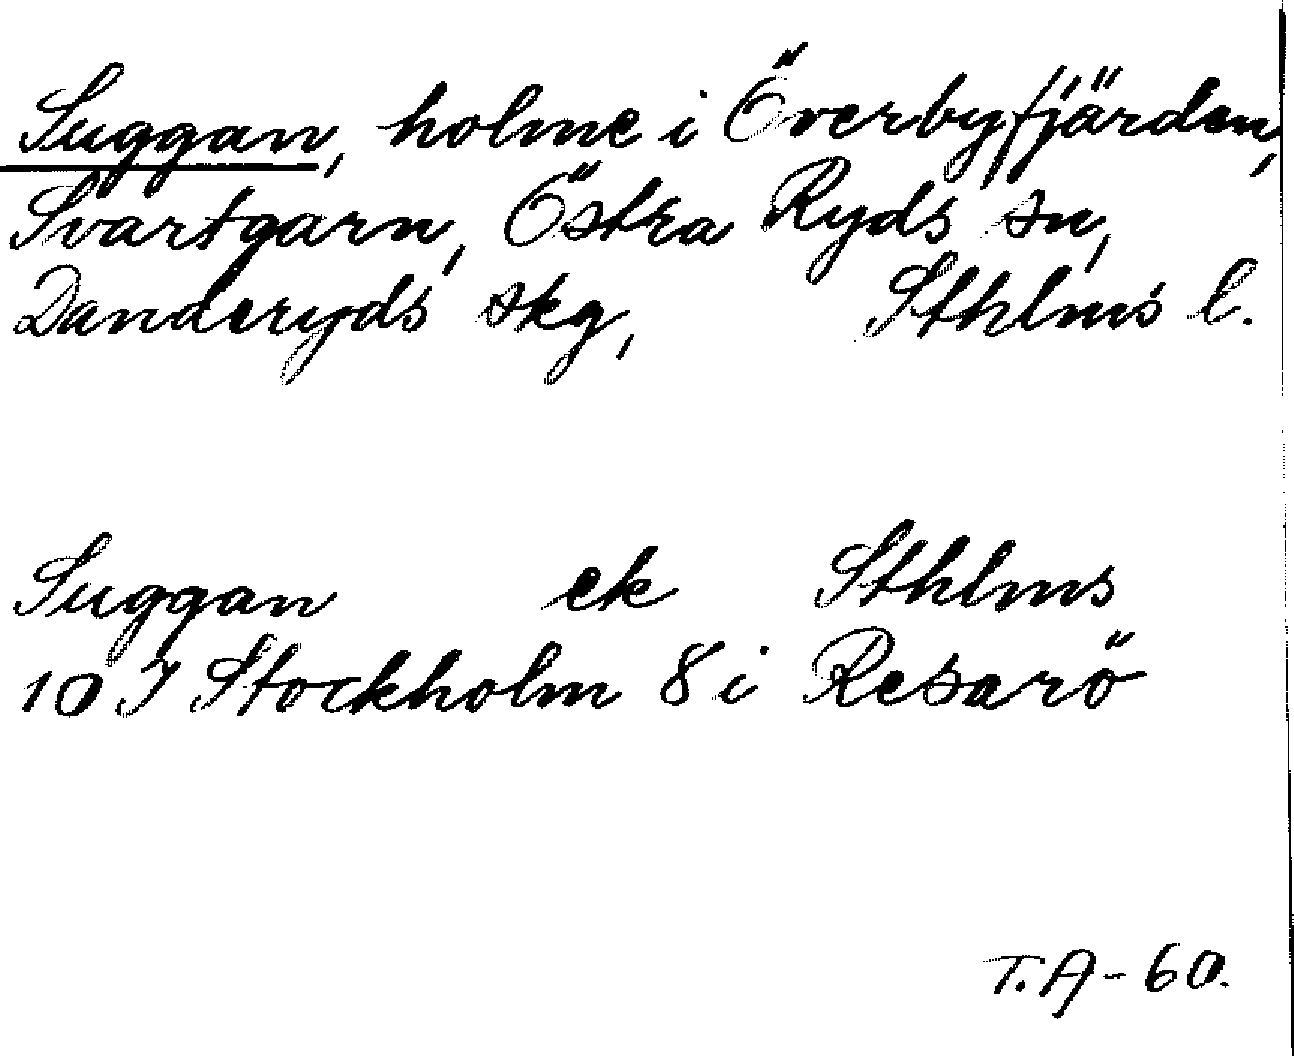 Suggan, holme i Överbyfjärden,
Svartgarn, Östra Ryds sn,
Danderyds skg, Sthlms l.
Suggan ek Sthlms
10 J Stockholm 8 i Resarö
T.A-60.